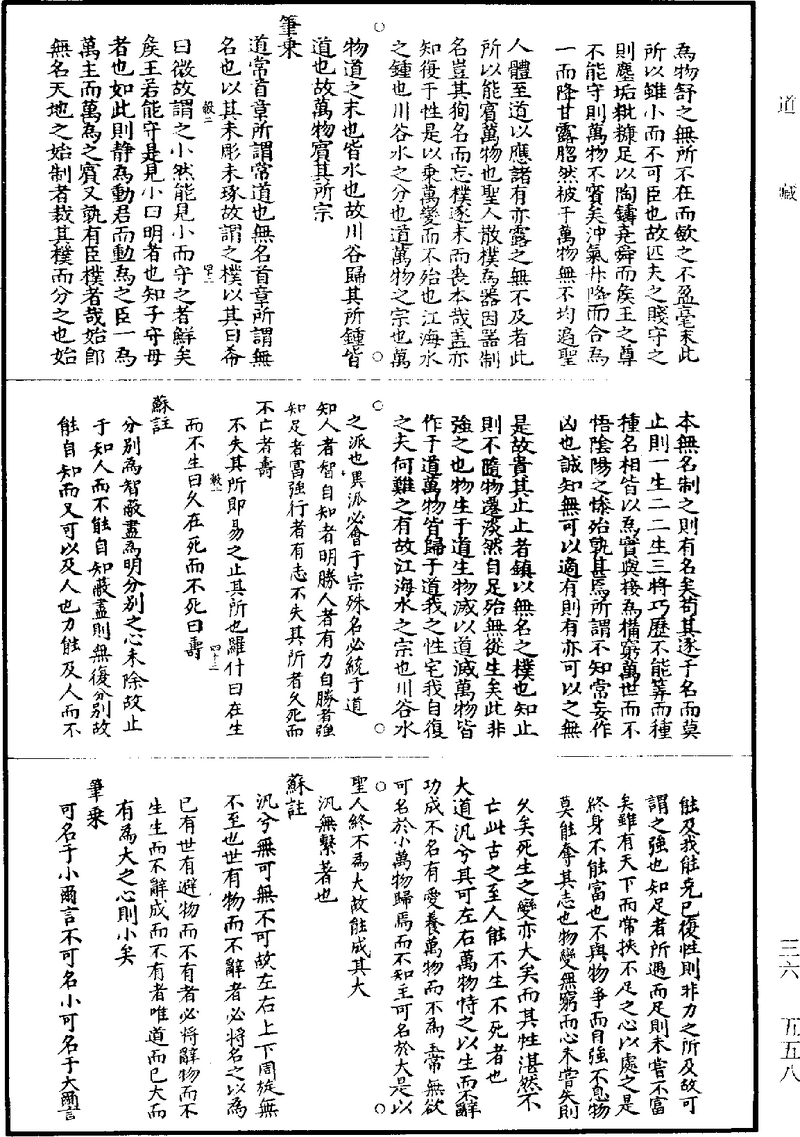 道藏
三六 五五八
為物舒之無所不在而歛之不盈毫末此
所以雖小而不可臣也故匹夫之賤守之
則塵垢粃糠足以陶鑄堯舜而侯王之尊
不能守則萬物不賓矣沖氣升降而合為
一而降甘露脗然被于萬物無不均遍聖
人體至道以應諸有亦露之無不及者此
所以能賓萬物也聖人散樸為器因器制
名豈其狥名而忘樸逐末而喪本哉盖亦
知復于性是以乘萬變而不殆也江海水
之鍾也川谷水之分也道萬物之宗也萬
物道之末也皆水也故川谷歸其所鍾皆
道也故萬物賓其所宗
筆乘
道常首章所謂常道也無名首章所謂無
名也以其未彫未琢故謂之樸以其曰希
曰微故謂之小然能見小而守之者鮮矣
侯王若能守是見小曰明者也知子守母
者也如此則静為動君而動為之臣一為
萬主而萬為之賓又孰有臣樸者哉始即
無名天地之始制者裁其樸而分之也始
本無名制之則有名矣苟其逐于名而莫
止則一生二二生三將巧歷不能筭而種
種名相皆以為實與接為構窮萬世而不
悟陰陽之慘殆孰甚焉所謂不知常妄作
凶也誠知無可以適有則有亦可以之無
是故貴其止止者鎮以無名之樸也知止
則不隨物遷淡然自足殆無從生矣此非
強之也物生于道生物滅以道滅萬物皆
作于道萬物皆歸于道我之性宅我自復
之夫何難之有故江海水之宗也川谷水
之派也異派必會于宗殊名必統于道
知人者智自知者明勝人者有力自勝者強
知足者富強行者有志不失其所者久死而
不亡者壽
不失其所即易之止其所也羅什曰在生
而不生曰久在死而不死曰壽
蘇註
分別為智蔽盡為明分別之心未除故止
于知人而不能自知蔽盡則無復分別故
能自知而又可以及人也力能及人而不
能及我能克已復性則非力之所及故可
謂之強也知足者所遇而足則未嘗不富
矣雖有天下而常挾不足之心以處之是
終身不能富也不與物爭而自強不息物
莫能奪其志也物變無窮而心未嘗失則
久矣死生之變亦大矣而其性湛然不
亡此古之至人能不生不死者也
大道汎兮其可左右萬物恃之以生而不辭
功成不名有愛養萬物而不為主常無欲
可名於小萬物歸焉而不知主可名於大是以
聖人終不為大故能成其大
汎無繫著也
蘇註
汎兮無可無不可故左右上下周旋無
不至也世有物而不辭者必將名之以為
已有世有避物而不有者必將辭物而不
生生而不辭成而不有者唯道而已大而
有為大之心則小矣
筆乘
可名于小爾言不可名小可名于大爾言